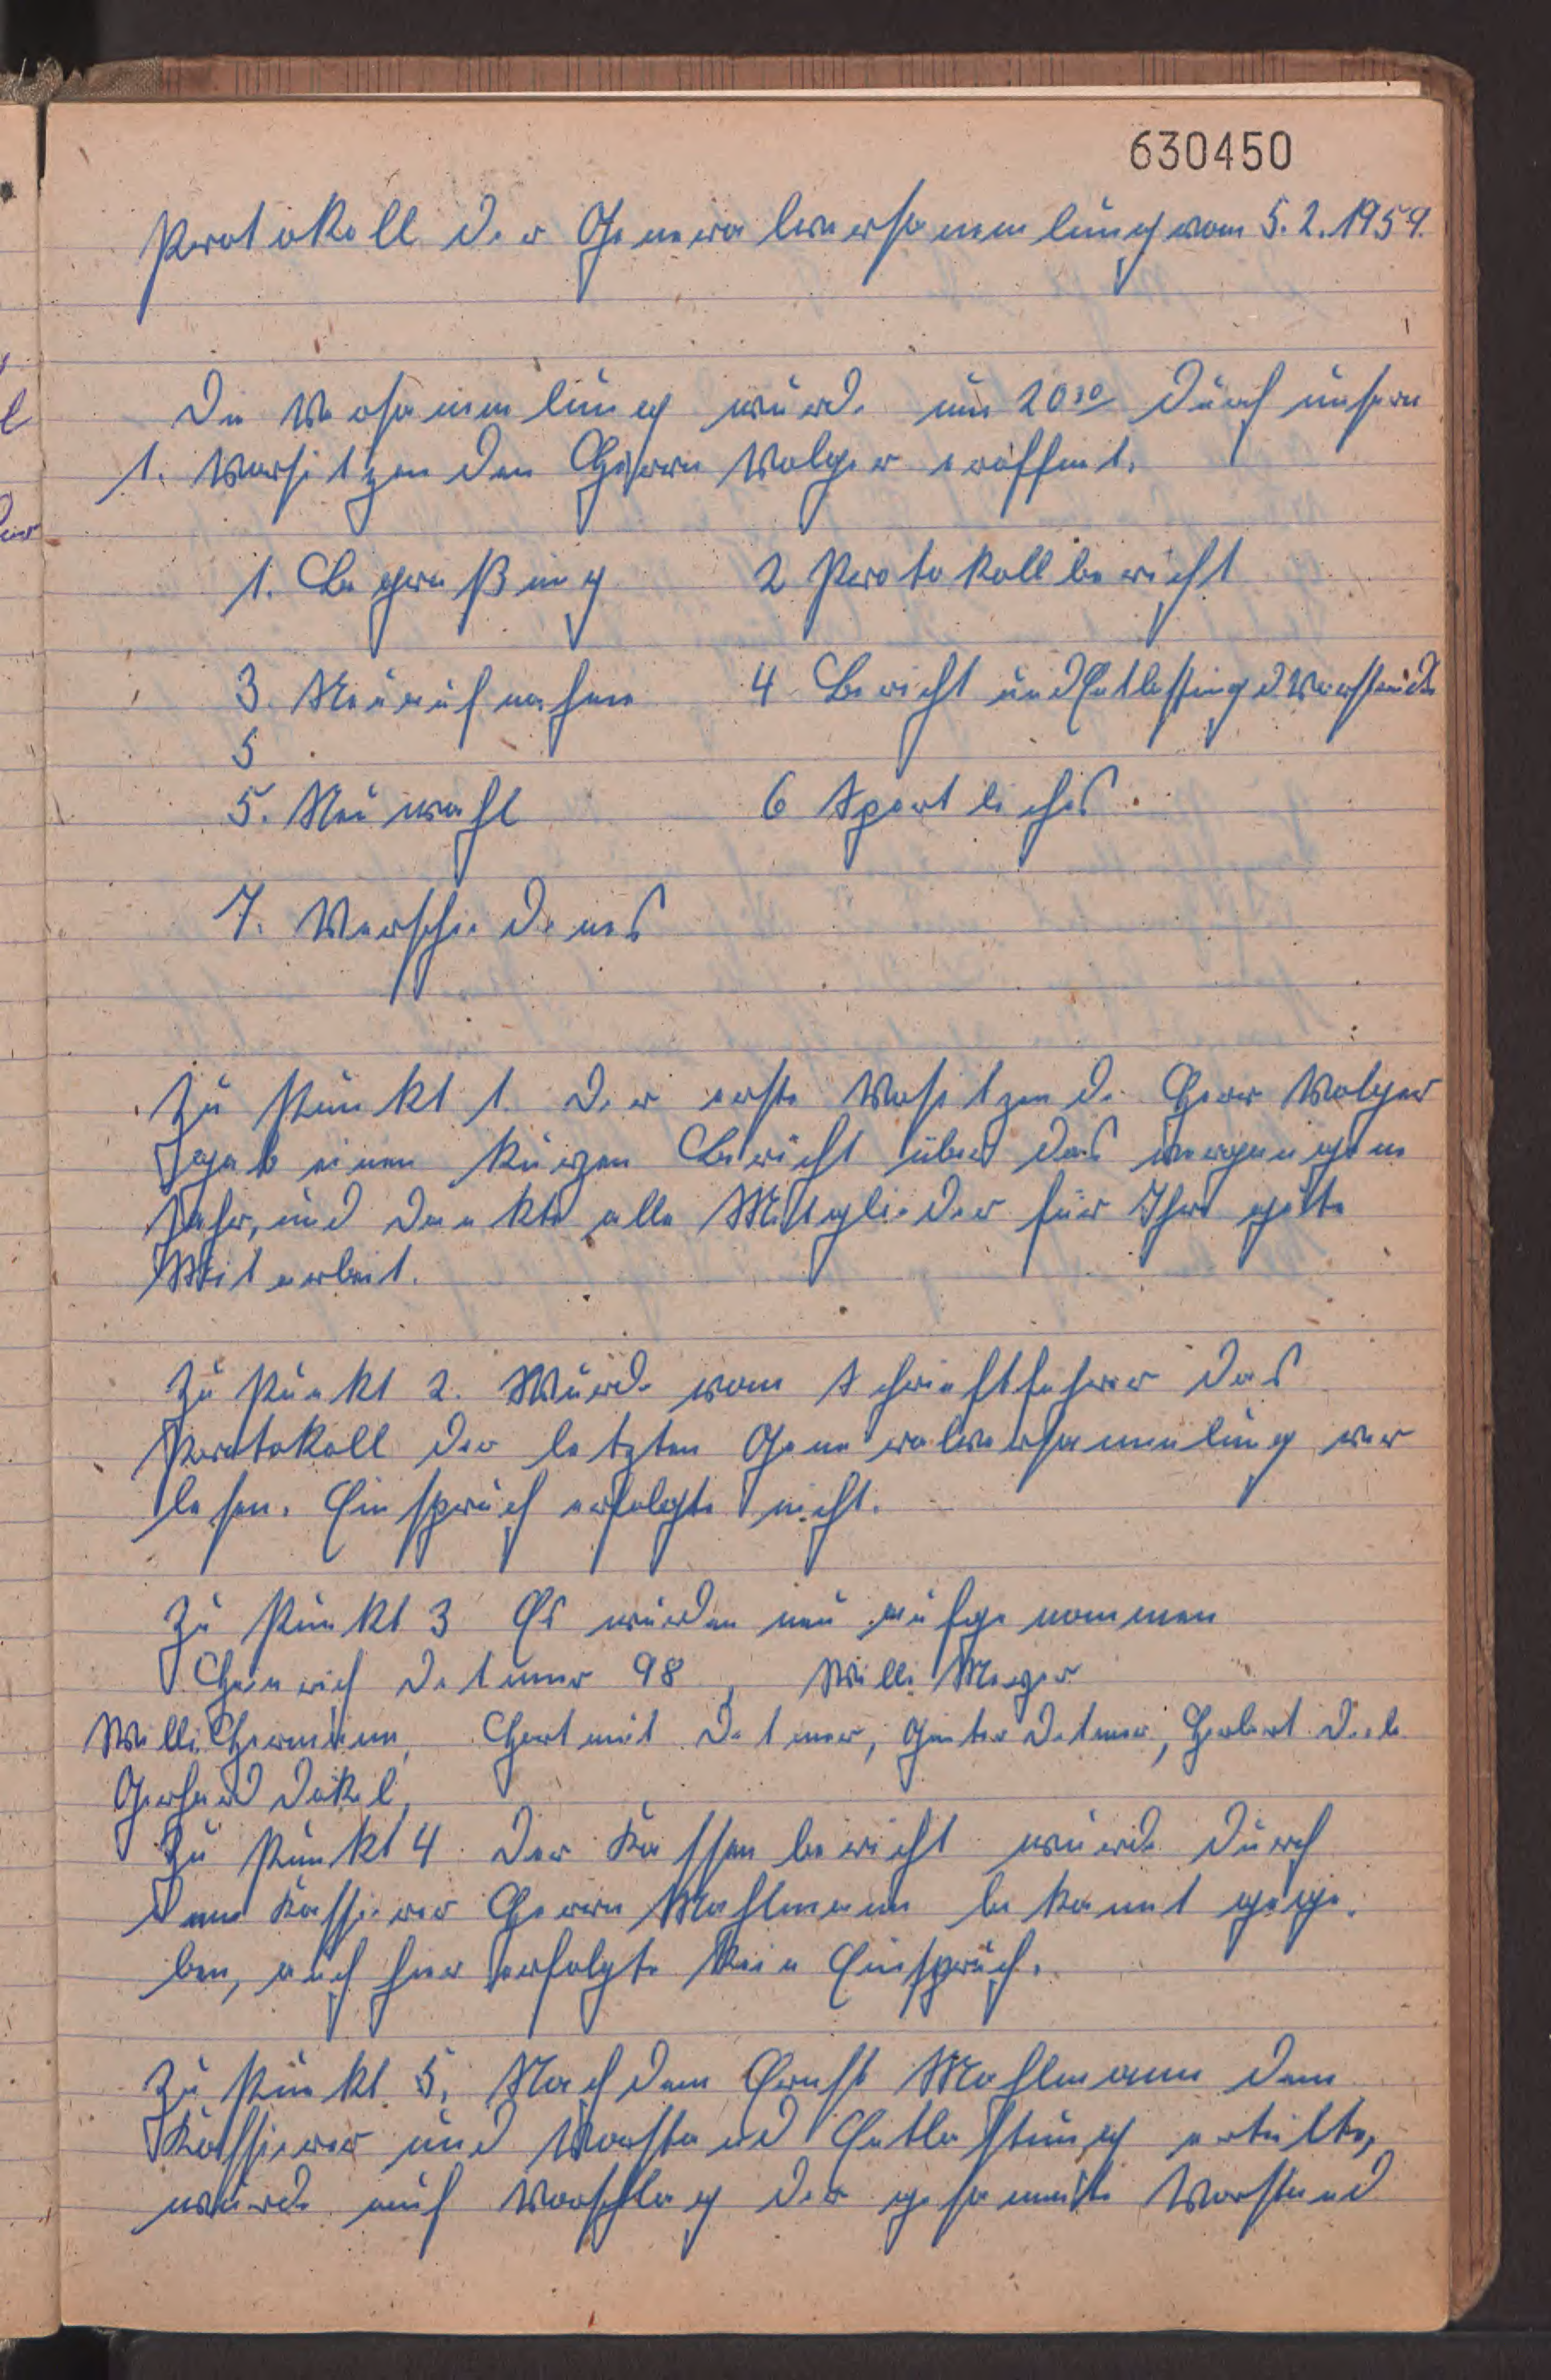 630450
Protokoll der Generalversammlung vom 5.2.1959.
Die Versammlung wurde um 20³⁰ durch unsern
1. Vorsitzenden Herrn Volger eröffnet.
1. Begrüßung 2 Protokollbericht
3. Neuaufnahme 4 Bericht und Entlastung d Vorstands
5
5. Neuwahl 6 Sportliches.
7. Verschiedenes
Zu Punkt 1. Der erste Vositzende Herr Volger
gab einen kurzen Bericht über das vergangene
Jahr, und dankte alle Mitglieder für Ihre gute
Mitarbeit.
Zu Punkt 2. Wurde vom Schriftfuhrer das
Protokoll der letzten Generalversammlung ver
lesen. Einspruch erfolgte nicht.
Zu Punkt 3 Es wurden neu aufgenommen
Heinrich Detmer 98, Willi Meyer
Willi Hermann, Hartmut Detmer, Günter Detmer, Herbert
Gerhard
Zu Punkt 4 Der Kassenbericht wurde durch
den Kassierer Herrn Mahlmann bekannt gege.
ben, auch hier erfolgte kein Einspruch.
Zu Punkt 5. Nachdem Ernst Mahlmann dem
Kassierer und Vorstand Entlastung erteilte,
wurde auf Vorschlag der gesammte Vorstand